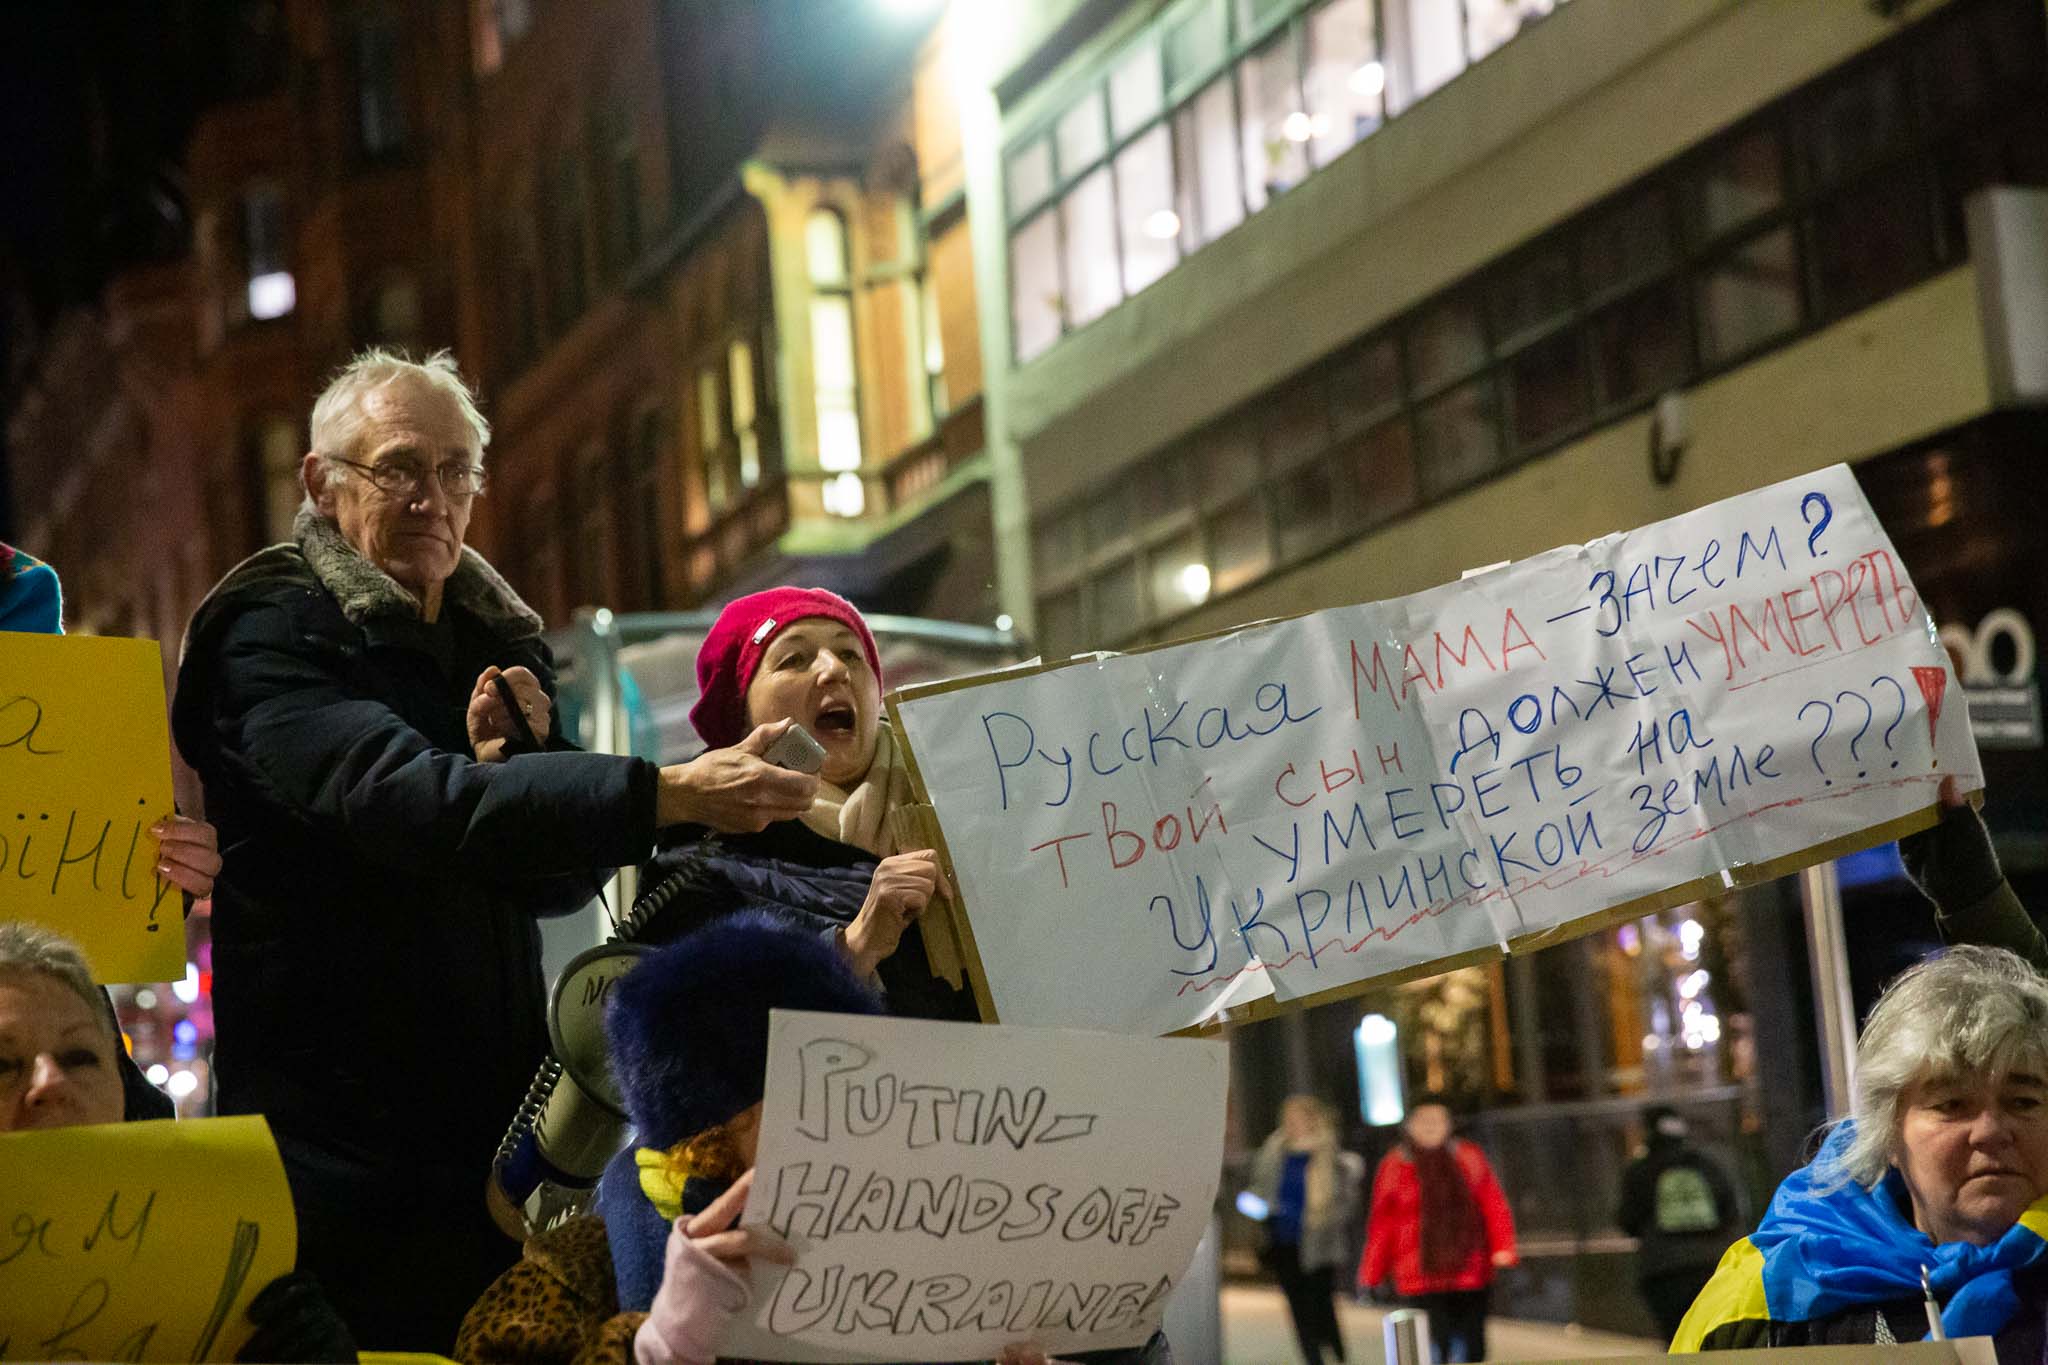 Русская МАМА – ЗАЧЕМ?
ТВОЙ СЫН ДОЛЖЕН УМЕРЕТЬ
УМЕРЕТЬ на
УКРАИНСКОЙ земле ???!
PUTIN-
HANDS OFF
UKRAINE!
а
їні!
ям
ва!